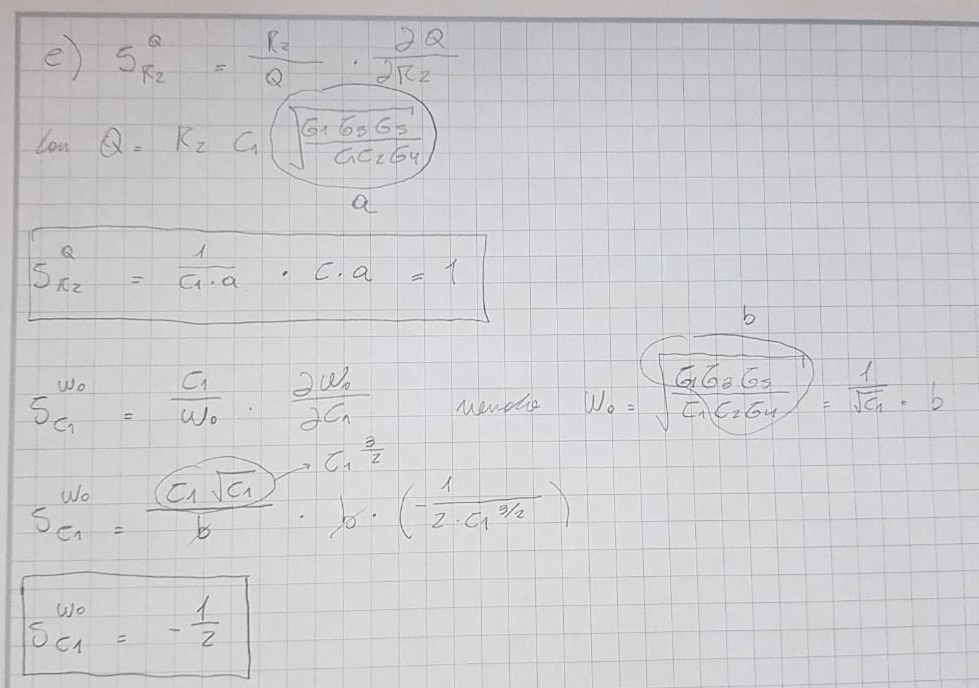 e) S_{R2}^{Q} = R2/Q · ∂Q/∂R2
Con Q = R2 C1 √(G1 G3 G5 / C1 C2 G4)
a
S_{R2}^{Q} = 1/(C1·a) · C·a = 1
b
S_{C1}^{W0} = C1/W0 · ∂W0/∂C1 siendo W0 = √(G1 G3 G5 / C1 C2 G4) = 1/√C1 · b
C1^{3/2}
S_{C1}^{W0} = C1 √C1 / b · b · (-1/(2·C1^{3/2}))
S_{C1}^{W0} = - 1/2